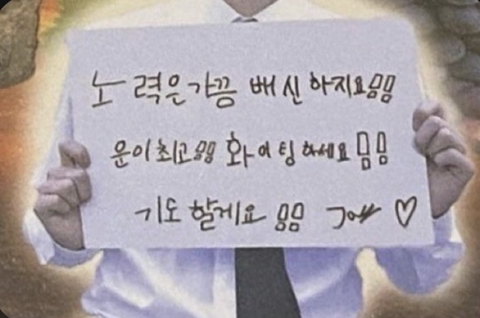 노력은가끔 배신하지요!!!!
운이최고!!!! 화이팅하세요!!!!
기도할게요!!!! ♡